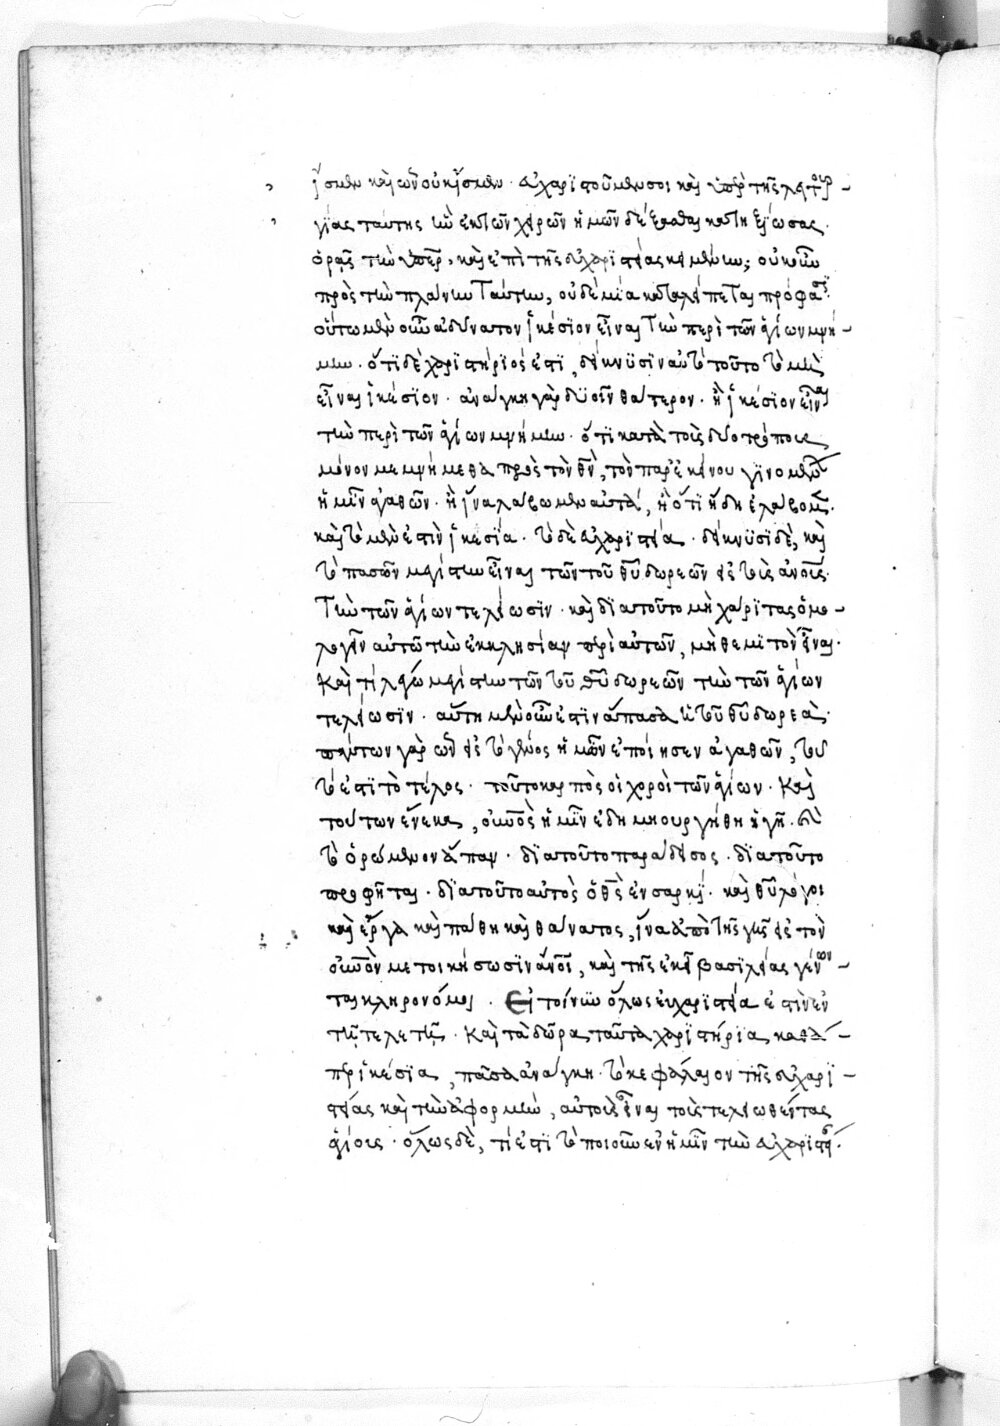 ἴσμεν καὶ ὧν οὐκ ἴσμεν· εὐχαριστοῦμέν σοι καὶ ὑπὲρ τῆς λειτουρ-
γίας ταύτης ἣν ἐκ τῶν χειρῶν ἡμῶν δέξασθαι κατηξίωσας·
ὁρᾷς τὴν ὑπὲρ, καὶ ἐπὶ τῆς εὐχαριστίας κειμένην; οὐκοῦν
πρὸς τὴν πλάνην ταύτην, οὐδεμία καταλείπεται πρόφασις·
οὕτω μὲν οὖν ἀδύνατον ἱκέσιον εἶναι τὴν περὶ τῶν ἁγίων μνή-
μην· ὅτι δὲ χαριστήριός ἐστι, δείκνυσιν αὐτὸ τοῦτο τὸ μὴ
εἶναι ἱκέσιον· ἀνάγκη γὰρ δυοῖν θάτερον· ἢ ἱκέσιον εἶναι
τὴν περὶ τῶν ἁγίων μνήμην· ὅτι κατὰ τοὺς δύο τρόπους
μόνον μεμνήμεθα πρὸς τὸν θν, τῶν παρ' ἐκείνου γινομένων
ἡμῖν ἀγαθῶν· ἢ ἵνα λάβωμεν αὐτά, ἢ ὅτι ἤδη ἐλάβομεν·
καὶ τὸ μὲν ἐστὶν ἱκεσία· τὸ δὲ εὐχαριστία· δείκνυσι δὲ, καὶ
τὸ πασῶν μεγίστην εἶναι τῶν τοῦ θυ δωρεῶν εἰς τοὺς ἀνους·
τὴν τῶν ἁγίων τελείωσιν· καὶ διατοῦτο μὴ χάριτας ὁμο-
λογεῖν αὐτῷ τὴν ἐκκλησίαν περὶ αὐτῶν, μὴ θεμιτὸν εἶναι·
Καὶ τί λέγω μεγίστην τῶν τοῦ θυ δωρεῶν τὴν τῶν ἁγίων
τελείωσιν· αὕτη μὲν οὖν ἐστιν ἅπασα ἡ τοῦ θυ δωρεά·
πάντων γὰρ ὧν εἰς τὸ γένος ἡμῶν ἐποίησεν ἀγαθῶν, τοῦ
τό ἐστι τὸ τέλος· τοῦτο καρπὸς οἱ χοροὶ τῶν ἁγίων· Καὶ
τούτων ἕνεκα, οὐνὸς ἡμῖν ἐδημιουργήθη ἡ γῆ· καὶ
τὸ ὁρώμενον ἅπαν· διατοῦτο παράδεισος· διατοῦτο
προφῆται· διατοῦτο αὐτὸς ὁ θς ἐν σαρκί· καὶ θυ λόγοι
καὶ ἔργα καὶ πάθη καὶ θάνατος, ἵνα ἀπὸ τῆς γῆς εἰς τὸν
οὐνὸν μετοικήσωσιν ἄνοι, καὶ τῆς ἐκεῖ βασιλείας γένων-
ται κληρονόμοι. Εἰ τοίνυν ὅλως εὐχαριστία ἐστὶν ἐν
τῇ τελετῇ· Καὶ τὰ δῶρα ταῦτα χαριστήρια καθά-
περ ἱκέσια, πᾶσα ἀνάγκη· τὸ κεφάλαιον τῆς εὐχαρι-
στίας καὶ τὴν ἀφορμὴν, αὐτοὺς εἶναι τοὺς τελειωθέντας
ἁγίους· ὅλως δὲ, τί ἐστι τὸ ποιοῦν ἐν ἡμῖν τὴν εὐχαριστί